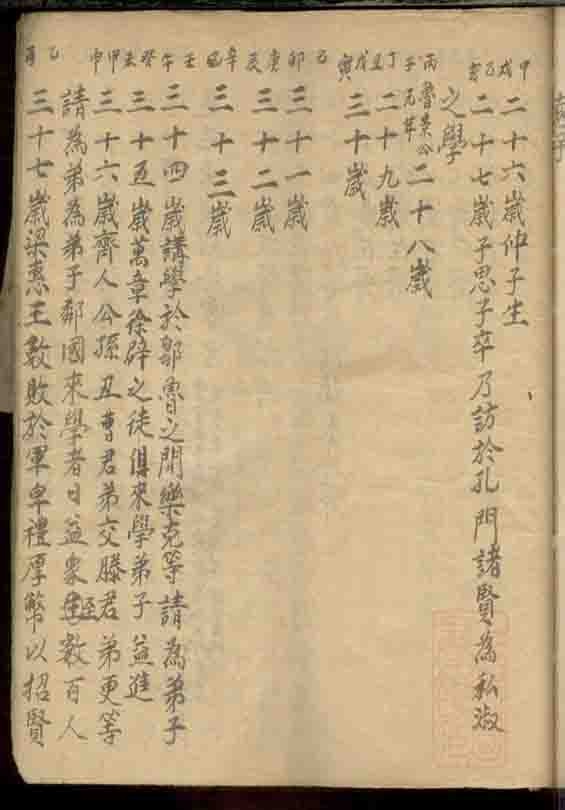 甲戌 二十六歲仲子生
乙亥 二十七歲子思子卒乃訪於孔門諸賢為私淑
之學
丙子 魯景公元年 二十八歲
丁丑 二十九歲
戊寅 三十歲
己卯 三十一歲
庚辰 三十二歲
辛巳 三十三歲
壬午 三十四歲講學於鄒魯之間樂克等請為弟子
癸未 三十五歲萬章徐辟之徒俱來學弟子益進
甲申 三十六歲齊人公孫丑曹君弟交滕君弟更等
請為弟為弟子鄒國來學者日益衆至數百人
乙酉 三十七歲梁惠王數敗於軍卑禮厚幣以招賢